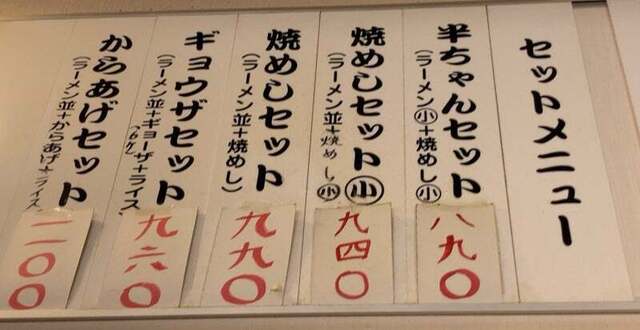 セットメニュー
半ちゃんセット
(ラーメン小+焼めし小)
八九〇
焼めしセット小
(ラーメン並+焼めし小)
九四〇
焼めしセット
(ラーメン並+焼めし)
九九〇
ギョウザセット
(ラーメン並+ギョーザ+ライス
(6ケ)
九六〇
からあげセット
(ラーメン並+からあげ+ライス
一一〇〇